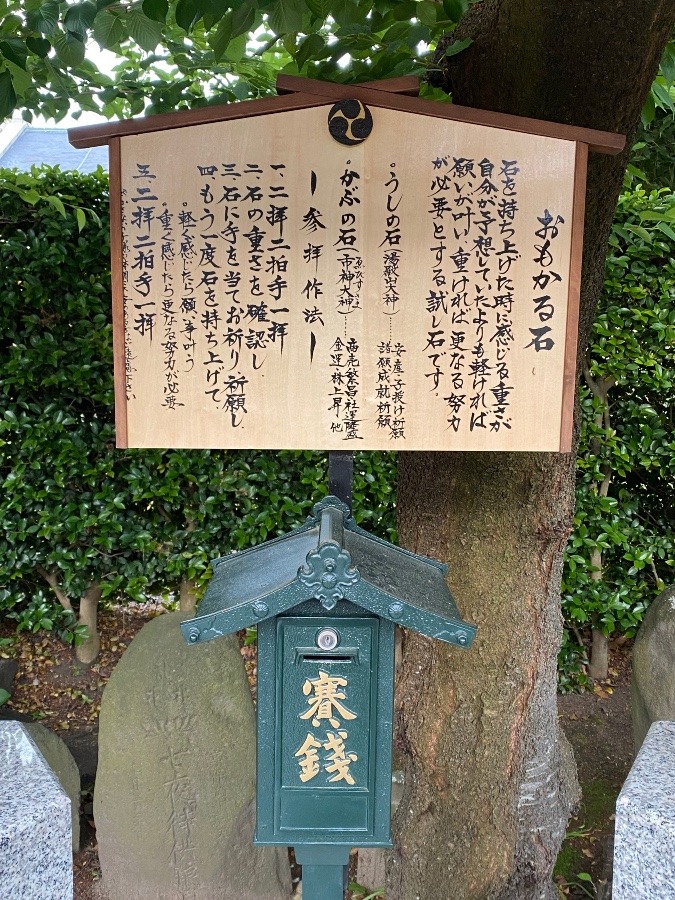 おもかる石
石を持ち上げた時に感じる重さが
自分が予想していたよりも軽ければ
願いが叶い、重ければ更なる努力
が必要とする試し石です。
◦うしの石（湯殿山大神）……安産子授け祈願
諸願成就祈願
◦かぶの石（市神大神）……商売繁昌社運隆盛
金運・株上昇他
ー参拝作法ー
一、二拝二拍手一拝
二、石の重さを確認し、
三、石に手を当てお祈り・祈願し、
四、もう一度石を持ち上げて、
・軽く感じたら願い事叶う
・重く感じたら更なる努力が必要
五、二拝二拍手一拝
賽銭